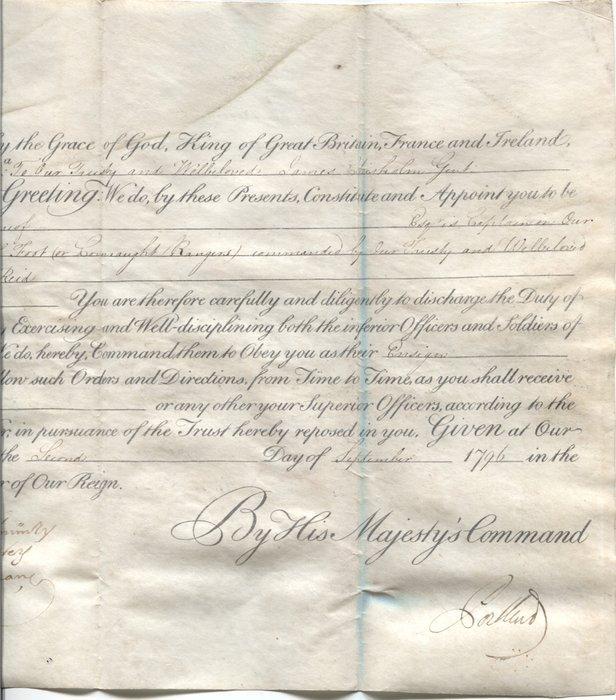 by the Grace of God, King of Great Britain, France and Ireland,
To Our Trusty and Wellbeloved James Chisholm Gent
Greeting: We do, by these Presents, Constitute and Appoint you to be
Esq. is Captain in Our
Foot (or Connaught Rangers) commanded by Our Trusty and Welbeloved
Reid
You are therefore carefully and diligently to discharge the Duty of
Exercising and Well-disciplining both the inferior Officers and Soldiers of
We do, hereby, Command them to Obey you as their Ensign
such Orders and Directions, from Time to Time, as you shall receive
or any other your Superior Officers, according to the
in pursuance of the Trust hereby reposed in you. Given at Our
the Second Day of September 1796 in the
of Our Reign.
By His Majesty's Command
Portland